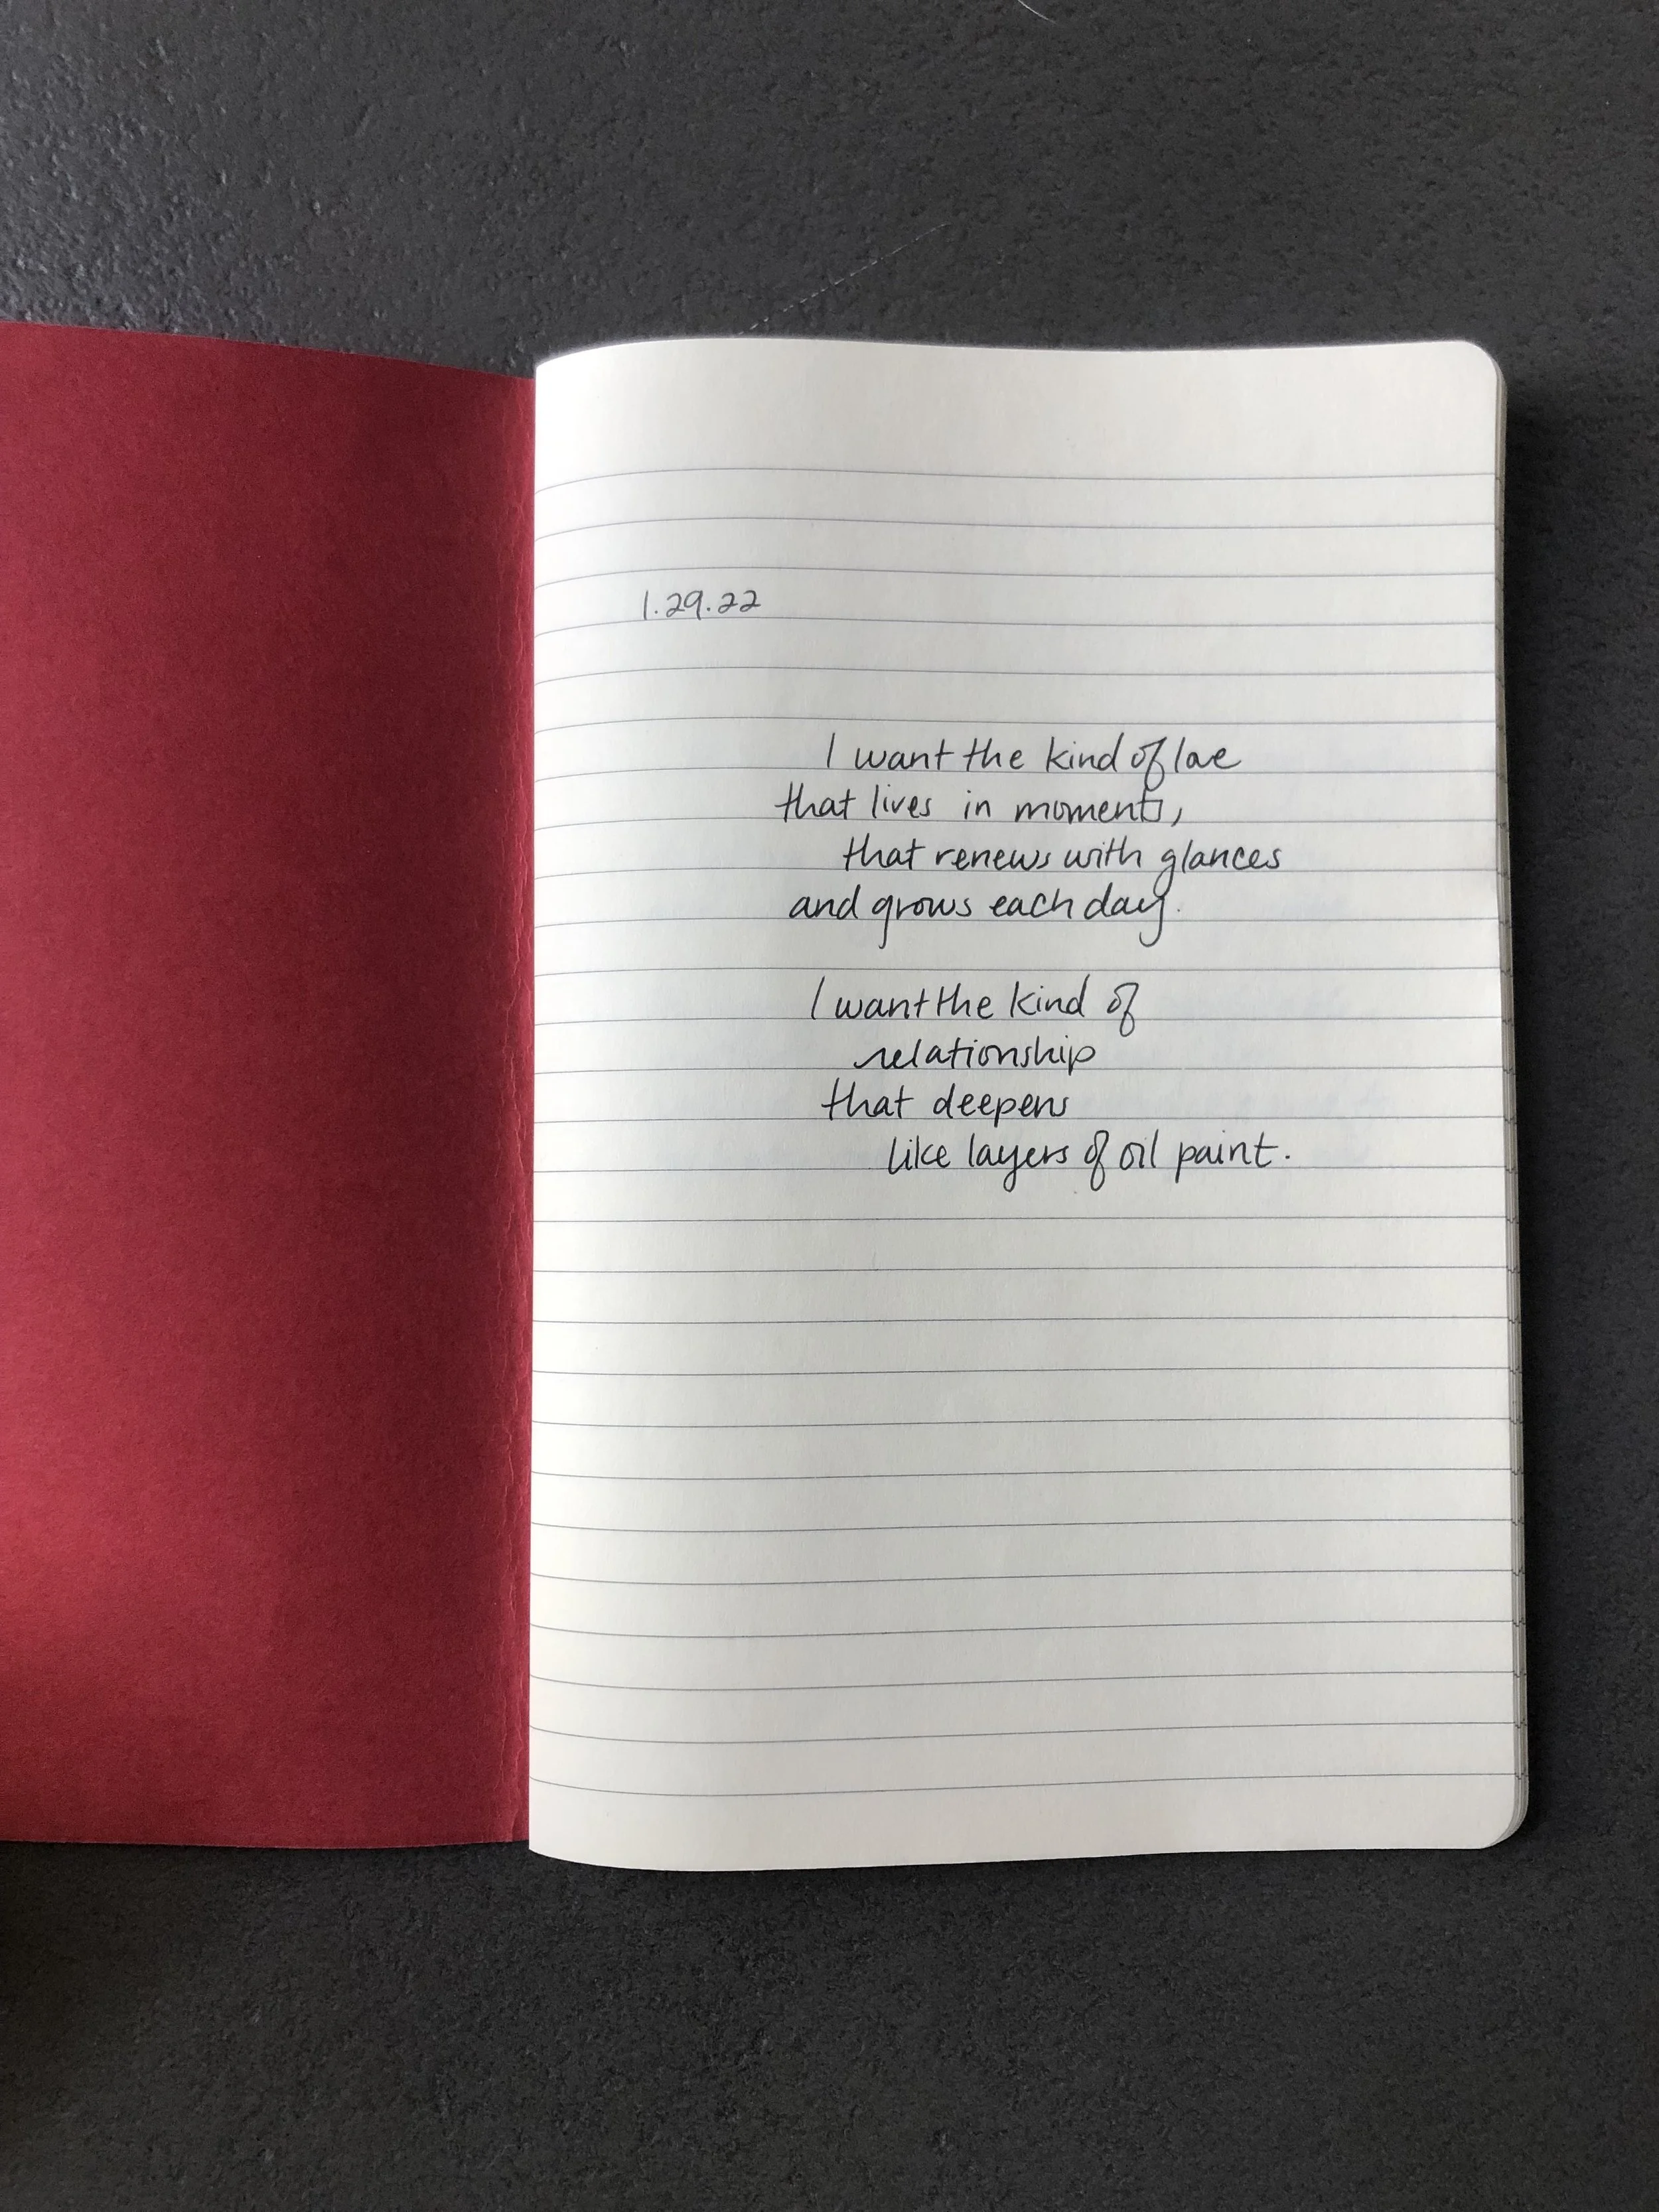 1.29.22
I want the kind of love
that lives in moments,
that renews with glances
and grows each day.
I want the kind of
relationship
that deepens
like layers of oil paint.